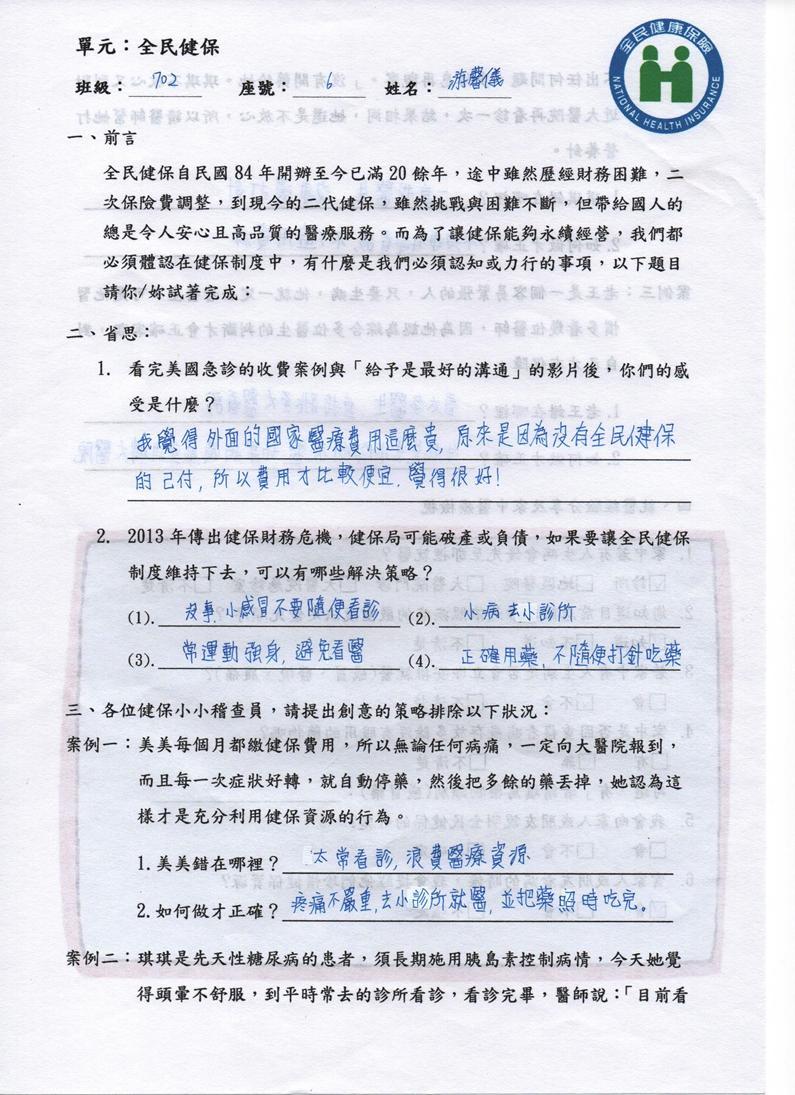 單元：全民健保
全民健康保險
NATIONAL HEALTH INSURANCE
班級：702 座號：6 姓名：游馨儀
一、前言
全民健保自民國 84 年開辦至今已滿 20 餘年，途中雖然歷經財務困難，二
次保險費調整，到現今的二代健保，雖然挑戰與困難不斷，但帶給國人的
總是令人安心且高品質的醫療服務。而為了讓健保能夠永續經營，我們都
必須體認在健保制度中，有什麼是我們必須認知或力行的事項，以下題目
請你/妳試著完成：
二、省思：
1. 看完美國急診的收費案例與「給予是最好的溝通」的影片後，你們的感
受是什麼？
我覺得外面的國家醫療費用這麼貴，原來是因為沒有全民健保
的己付，所以費用才比較便宜．覺得很好！
2. 2013 年傳出健保財務危機，健保局可能破產或負債，如果要讓全民健保
制度維持下去，可以有哪些解決策略？
(1). 沒事，小感冒不要隨便看診 (2). 小病去小診所
(3). 常運動強身，避免看醫 (4). 正確用藥，不隨便打針吃藥
三、各位健保小小稽查員，請提出創意的策略排除以下狀況：
案例一：美美每個月都繳健保費用，所以無論任何病痛，一定向大醫院報到，
而且每一次症狀好轉，就自動停藥，然後把多餘的藥丟掉，她認為這
樣才是充分利用健保資源的行為。
1.美美錯在哪裡？太常看診，浪費醫療資源
2.如何做才正確？疼痛不嚴重，去小診所就醫，並把藥照時吃完。
案例二：琪琪是先天性糖尿病的患者，須長期施用胰島素控制病情，今天她覺
得頭暈不舒服，到平時常去的診所看診，看診完畢，醫師說：「目前看